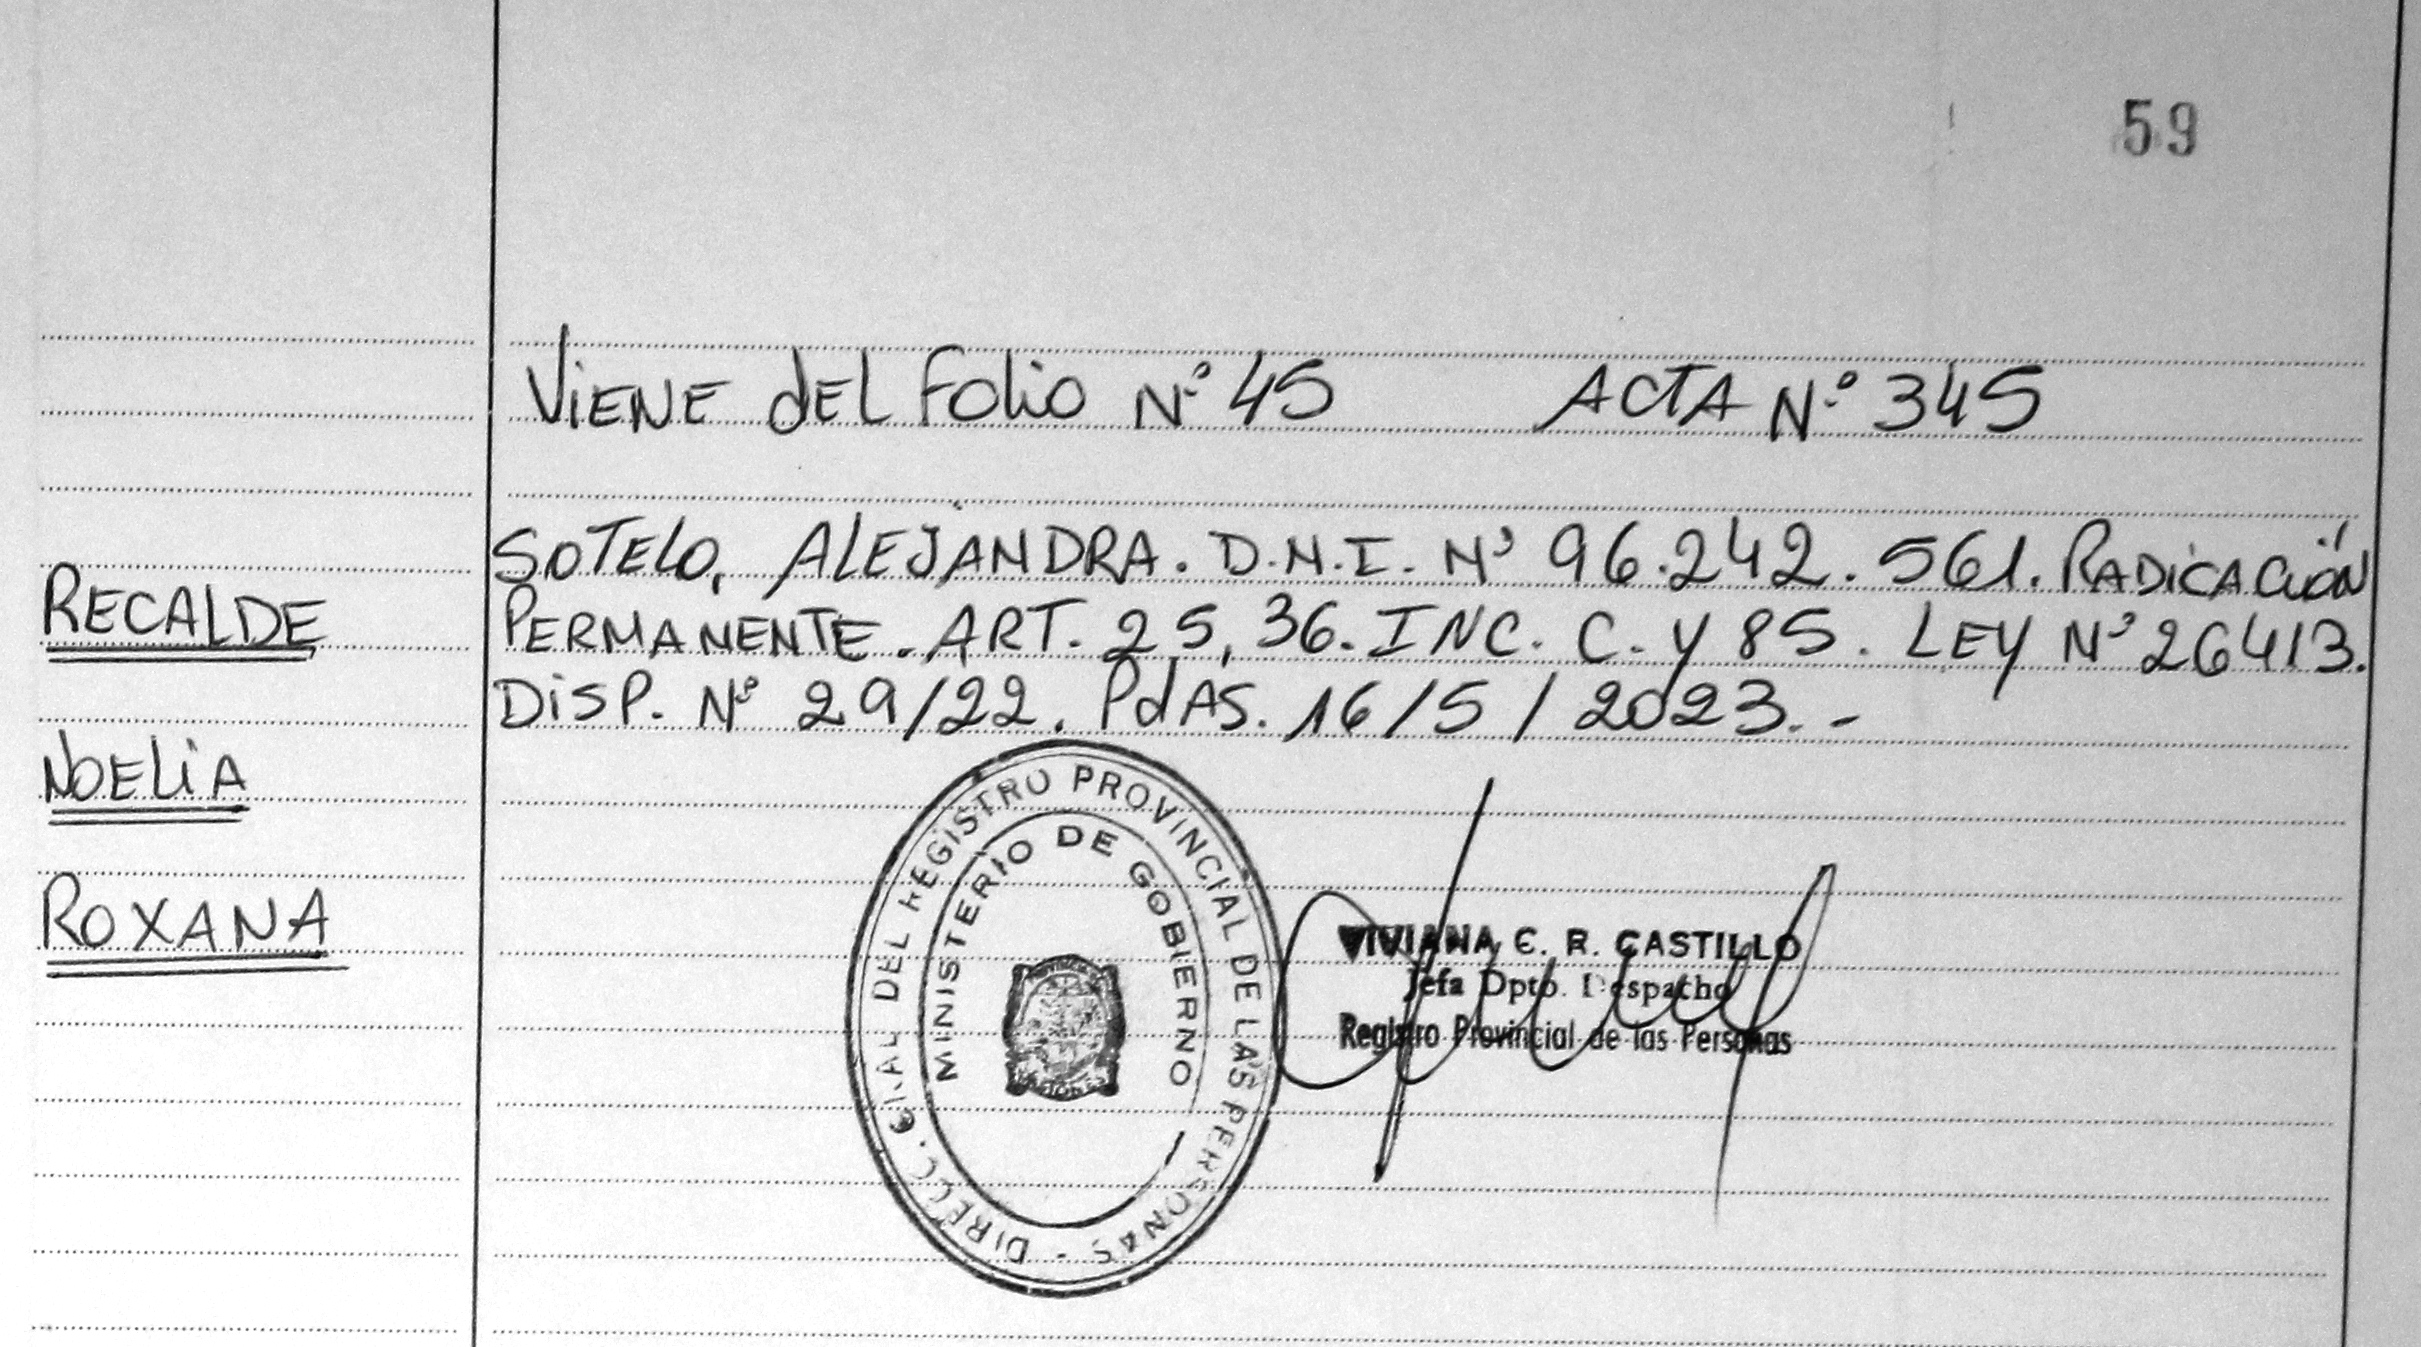 59
VIENE dEL FOLIO Nº 45 ACTA Nº 345
SOTELO, ALEJANDRA. D.N.I. Nº 96.242.561. RADICACIÓN
RECALDE
PERMANENTE. ART. 25, 36. INC. C. Y 85. LEY Nº 26413.
DISP. Nº 29/22. PdAS. 16/5/2023.-
NOELIA
ROXANA
DIRECC. GRAL DEL REGISTRO PROVINCIAL DE LAS PERSONAS -
MINISTERIO DE GOBIERNO
VIVIANA C. R. CASTILLO
Jefa Dpto. Despacho
Registro Provincial de las Personas